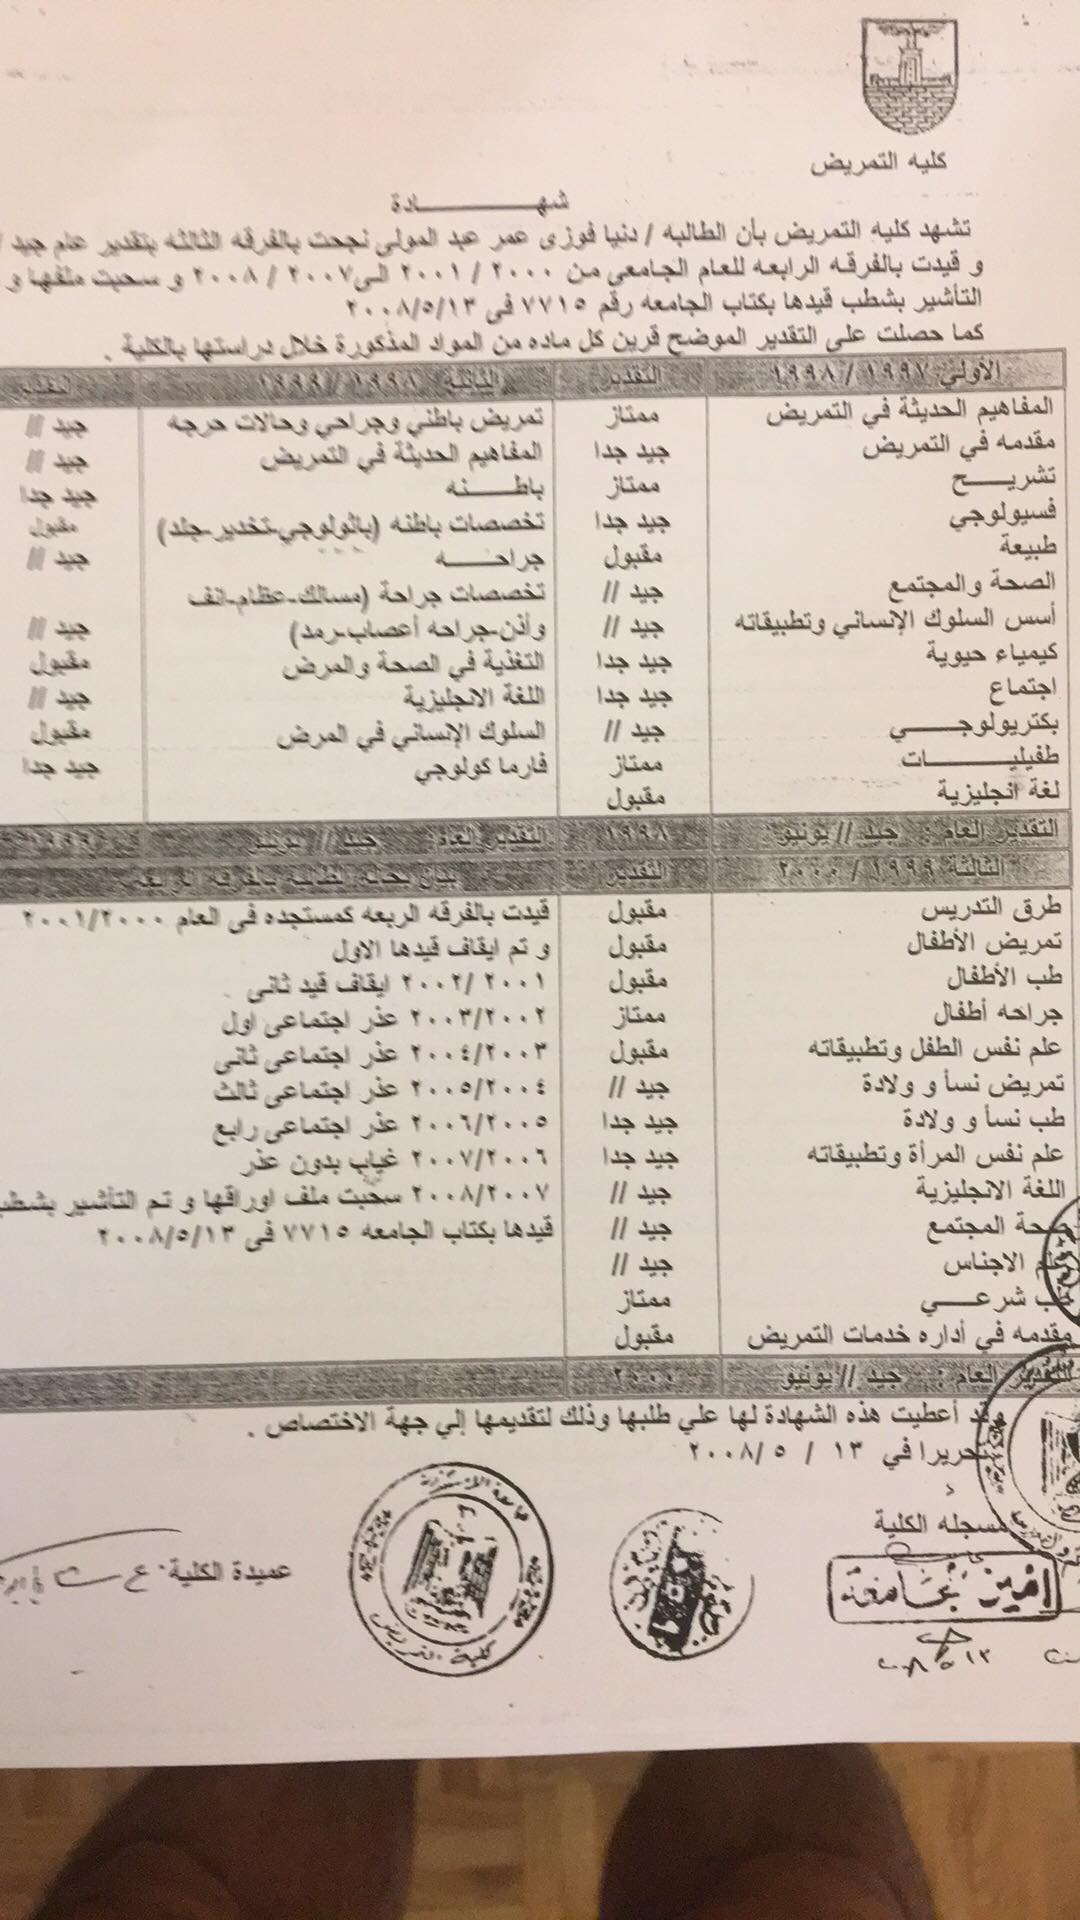 كليه التمريض
شهـــــــــادة
تشهد كليه التمريض بأن الطالبه / دنيا فوزى عمر عبد المولى نجحت بالفرقه الثالثه بتقدير عام جيد /
و قيدت بالفرقه الرابعه للعام الجامعى من ٢٠٠٠ / ٢٠٠١ الى ٢٠٠٧ / ٢٠٠٨ و سحبت ملفها و
التأشير بشطب قيدها بكتاب الجامعه رقم ٧٧١٥ فى ٢٠٠٨/٥/١٣
كما حصلت على التقدير الموضح قرين كل ماده من المواد المذكورة خلال دراستها بالكلية .
الأولي ١٩٩٧ / ١٩٩٨ التقدير الثانية ١٩٩٨ / ١٩٩٩ التقدير
المفاهيم الحديثة في التمريض ممتاز تمريض باطني وجراحي وحالات حرجه جيد //
مقدمه في التمريض جيد جدا المفاهيم الحديثة في التمريض جيد //
تشريـــــح ممتاز باطــــنه جيد جدا
فسيولوجي جيد جدا تخصصات باطنه (باثولوجي-تخدير-جلد) مقبول
طبيعة مقبول جراحــــه جيد //
الصحة والمجتمع جيد // تخصصات جراحة (مسالك-عظام-انف
أسس السلوك الإنساني وتطبيقاته جيد // وأذن-جراحه أعصاب-رمد) جيد //
كيمياء حيوية جيد جدا التغذية في الصحة والمرض مقبول
اجتماع جيد جدا اللغة الانجليزية جيد //
بكتريولوجــــي جيد // السلوك الإنساني في المرض مقبول
طفيليـــــــات ممتاز فارما كولوجي جيد جدا
لغة انجليزية مقبول
التقدير العام : جيد // يونيو ١٩٩٨ التقدير العام جيد // يونيو ١٩٩٩
الثالثة ١٩٩٩ / ٢٠٠٠ التقدير بيان بحالة الطالبه بالفرقه الرابعه
طرق التدريس مقبول قيدت بالفرقه الربعه كمستجده فى العام ٢٠٠١/٢٠٠٠
تمريض الأطفال مقبول و تم ايقاف قيدها الاول
طب الأطفال مقبول ٢٠٠١ /٢٠٠٢ ايقاف قيد ثانى
جراحه أطفال ممتاز ٢٠٠٣/٢٠٠٢ عذر اجتماعى اول
علم نفس الطفل وتطبيقاته مقبول ٢٠٠٤/٢٠٠٣ عذر اجتماعى ثانى
تمريض نسأ و ولادة جيد // ٢٠٠٥/٢٠٠٤ عذر اجتماعى ثالث
طب نسأ و ولادة جيد جدا ٢٠٠٦/٢٠٠٥ عذر اجتماعى رابع
علم نفس المرأة وتطبيقاته جيد جدا ٢٠٠٧/٢٠٠٦ غياب بدون عذر
اللغة الانجليزية جيد // ٢٠٠٨/٢٠٠٧ سحبت ملف اوراقها و تم التأشير بشطب
صحة المجتمع جيد // قيدها بكتاب الجامعه ٧٧١٥ فى ٢٠٠٨/٥/١٣
علم الاجناس جيد //
طب شرعـــي ممتاز
مقدمه في أداره خدمات التمريض مقبول
التقدير العام : جيد // يونيو ٢٠٠٠
وقد أعطيت هذه الشهادة لها علي طلبها وذلك لتقديمها إلي جهة الاختصاص .
تحريرا في ١٣ / ٥ /٢٠٠٨
مسجله الكلية
عميدة الكلية:
أمين الجامعة
كلية التمريض